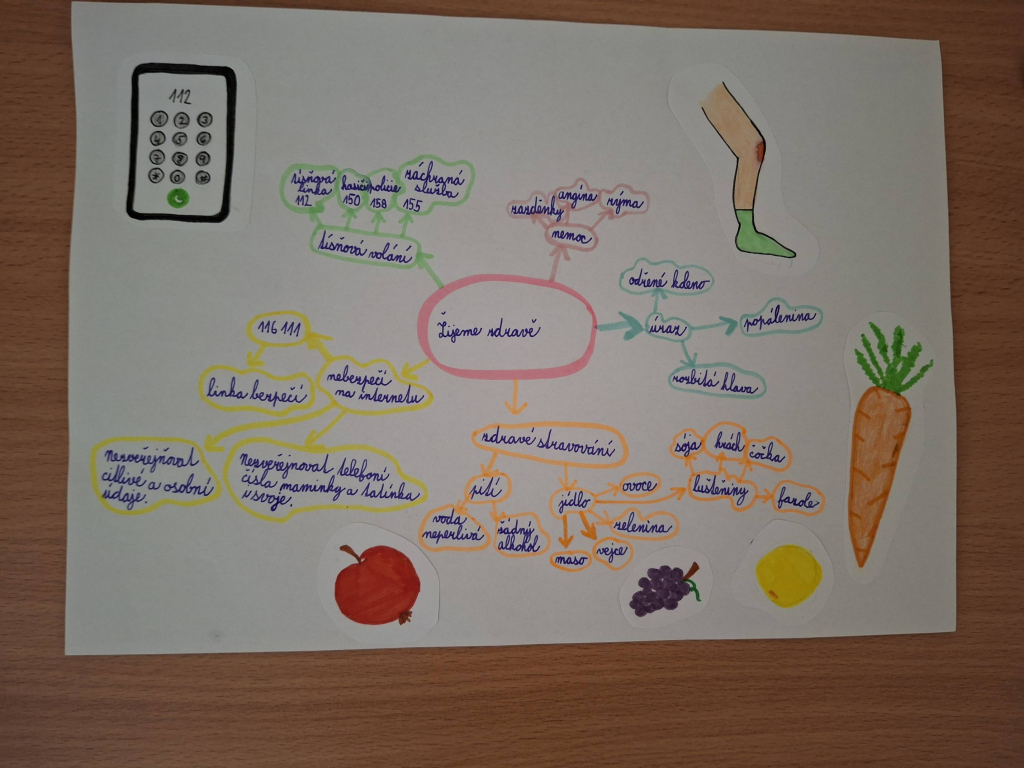 112
1 2 3
4 5 6
7 8 9
* 0 #
tísňová
linka
112
hasiči
150
policie
158
záchraná
služba
155
tísňová volání
zarděnky
angína
rýma
nemoc
odřené koleno
úraz
popálenina
rozbitá hlava
Žijeme zdravě
116 111
linka bezpečí
nebezpečí
na internetu
Nezveřejňovat
citlivé a osobní
údaje.
Nezveřejňovat telefoní
čísla maminky a tatínka
i svoje.
zdravé stravování
pití
voda
neperlivá
žádný
alkohol
jídlo
ovoce
zelenina
vejce
maso
luštěniny
sója
hrách
čočka
fazole